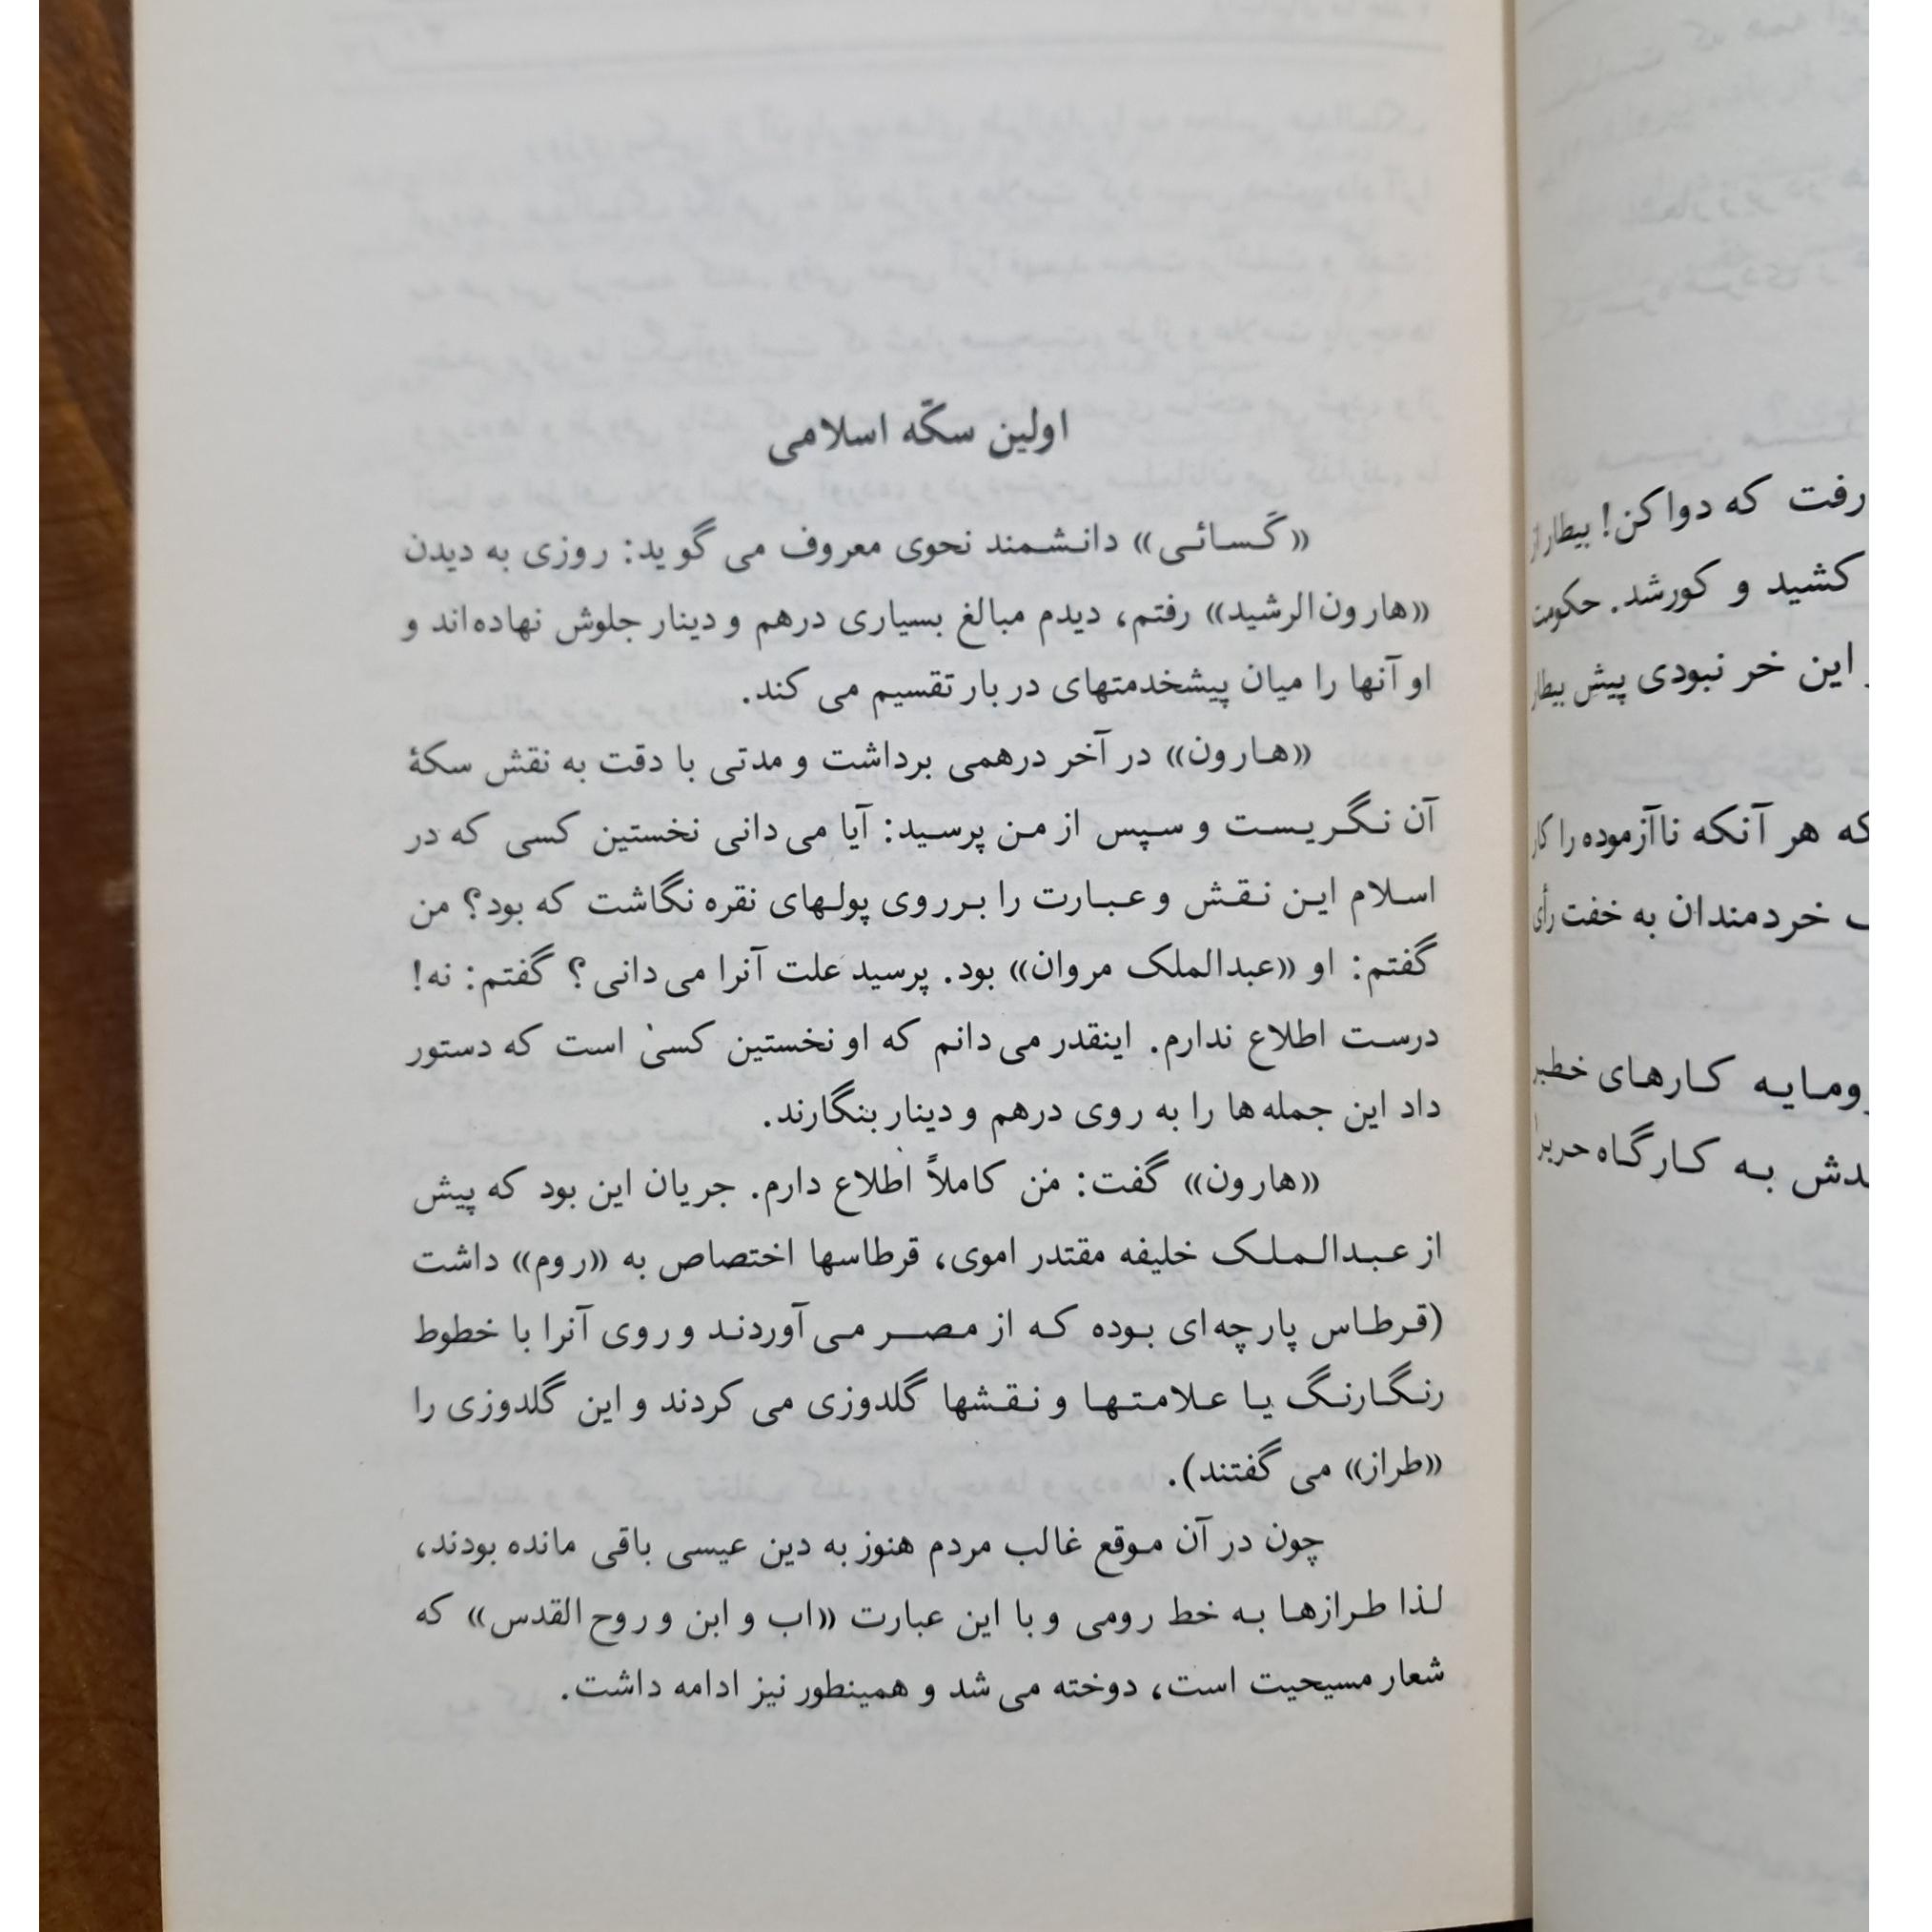 اولین سکّه اسلامی
«کَسائی» دانشمند نحوی معروف می گوید: روزی به دیدن
«هارون‌الرشید» رفتم، دیدم مبالغ بسیاری درهم و دینار جلوش نهاده‌اند و
او آنها را میان پیشخدمتهای دربار تقسیم می کند.
«هارون» در آخر درهمی برداشت و مدتی با دقت به نقش سکهٔ
آن نگریست و سپس از من پرسید: آیا می دانی نخستین کسی که در
اسلام این نقش و عبارت را برروی پولهای نقره نگاشت که بود؟ من
گفتم: او «عبدالملک مروان» بود. پرسید علت آنرا می دانی؟ گفتم: نه!
درست اطلاع ندارم. اینقدر می دانم که او نخستین کسی است که دستور
داد این جمله‌ها را به روی درهم و دینار بنگارند.
«هارون» گفت: من کاملاً اطلاع دارم. جریان این بود که پیش
از عبدالملک خلیفه مقتدر اموی، قرطاسها اختصاص به «روم» داشت
(قرطاس پارچه‌ای بوده که از مصر می آوردند و روی آنرا با خطوط
رنگارنگ یا علامتها و نقشها گلدوزی می کردند و این گلدوزی را
«طراز» می گفتند).
چون در آن موقع غالب مردم هنوز به دین عیسی باقی مانده بودند،
لذا طرازها به خط رومی و با این عبارت «اب و ابن و روح القدس» که
شعار مسیحیت است، دوخته می شد و همینطور نیز ادامه داشت.
رفت که دوا کن! بیطار از
کشید و کورشد. حکومت
این خر نبودی پیش بیطار
که هر آنکه ناآزموده را کار
خردمندان به خفت رأی
کارهای
به کارگاه حریر